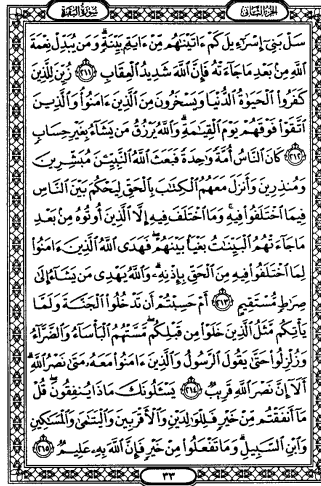 سُورَةُ البَقَرَةِ
الجُزْءُ الثَّانِي
سَلْ بَنِىٓ إِسْرَٰٓءِيلَ كَمْ ءَاتَيْنَٰهُم مِّنْ ءَايَةٍۭ بَيِّنَةٍ ۗ وَمَن يُبَدِّلْ نِعْمَةَ
ٱللَّهِ مِنۢ بَعْدِ مَا جَآءَتْهُ فَإِنَّ ٱللَّهَ شَدِيدُ ٱلْعِقَابِ ٢١١ زُيِّنَ لِلَّذِينَ
كَفَرُوا۟ ٱلْحَيَوٰةُ ٱلدُّنْيَا وَيَسْخَرُونَ مِنَ ٱلَّذِينَ ءَامَنُوا۟ ۘ وَٱلَّذِينَ
ٱتَّقَوْا۟ فَوْقَهُمْ يَوْمَ ٱلْقِيَٰمَةِ ۗ وَٱللَّهُ يَرْزُقُ مَن يَشَآءُ بِغَيْرِ حِسَابٍ
٢١٢ كَانَ ٱلنَّاسُ أُمَّةً وَٰحِدَةً فَبَعَثَ ٱللَّهُ ٱلنَّبِيِّـۧنَ مُبَشِّرِينَ
وَمُنذِرِينَ وَأَنزَلَ مَعَهُمُ ٱلْكِتَٰبَ بِٱلْحَقِّ لِيَحْكُمَ بَيْنَ ٱلنَّاسِ
فِيمَا ٱخْتَلَفُوا۟ فِيهِ ۚ وَمَا ٱخْتَلَفَ فِيهِ إِلَّا ٱلَّذِينَ أُوتُوهُ مِنۢ بَعْدِ
مَا جَآءَتْهُمُ ٱلْبَيِّنَٰتُ بَغْيًۢا بَيْنَهُمْ ۖ فَهَدَى ٱللَّهُ ٱلَّذِينَ ءَامَنُوا۟
لِمَا ٱخْتَلَفُوا۟ فِيهِ مِنَ ٱلْحَقِّ بِإِذْنِهِۦ ۗ وَٱللَّهُ يَهْدِى مَن يَشَآءُ إِلَىٰ
صِرَٰطٍ مُّسْتَقِيمٍ ٢١٣ أَمْ حَسِبْتُمْ أَن تَدْخُلُوا۟ ٱلْجَنَّةَ وَلَمَّا
يَأْتِكُم مَّثَلُ ٱلَّذِينَ خَلَوْا۟ مِن قَبْلِكُم ۖ مَّسَّتْهُمُ ٱلْبَأْسَآءُ وَٱلضَّرَّآءُ
وَزُلْزِلُوا۟ حَتَّىٰ يَقُولَ ٱلرَّسُولُ وَٱلَّذِينَ ءَامَنُوا۟ مَعَهُۥ مَتَىٰ نَصْرُ ٱللَّهِ ۗ
أَلَآ إِنَّ نَصْرَ ٱللَّهِ قَرِيبٌ ٢١٤ يَسْـَٔلُونَكَ مَاذَا يُنفِقُونَ ۖ قُلْ
مَآ أَنفَقْتُم مِّنْ خَيْرٍ فَلِلْوَٰلِدَيْنِ وَٱلْأَقْرَبِينَ وَٱلْيَتَٰمَىٰ وَٱلْمَسَٰكِينِ
وَٱبْنِ ٱلسَّبِيلِ ۗ وَمَا تَفْعَلُوا۟ مِنْ خَيْرٍ فَإِنَّ ٱللَّهَ بِهِۦ عَلِيمٌ ٢١٥
٣٣